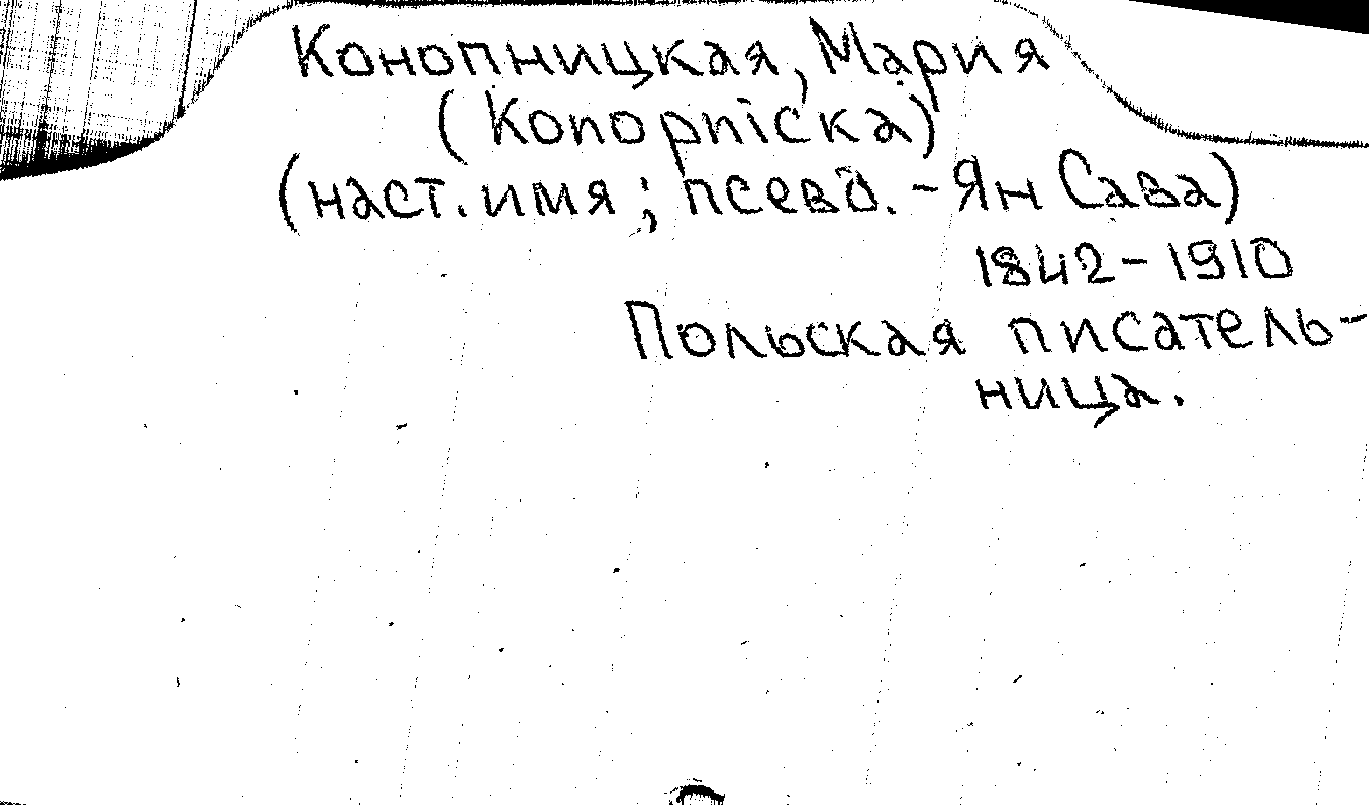 Конопницкая, Мария
(Konopnicka)
(наст. имя; псевд. - Ян Сава)
1842-1910
Польская писатель-
ница.